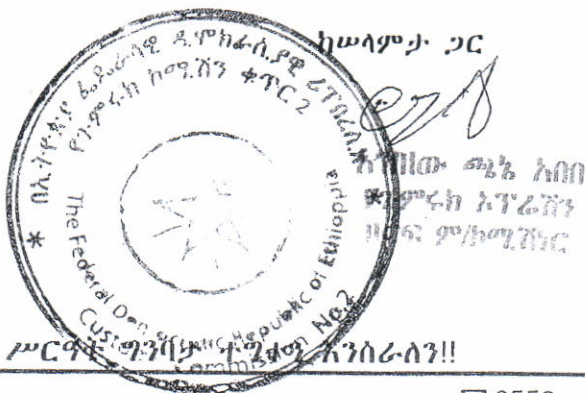 ከሠላምታ ጋር
በኢትዮጵያ ፌዴራላዊ ዲሞክራሲያዊ ሪፐብሊክ
የጉምሩክ ኮሚሽን ቁጥር 2
The Federal Democratic Republic of Ethiopia
Customs Commission No.2
ጫኔ አበበ
የጉምሩክ ኦፕሬሽን
ዘርፍ ም/ኮሚሽነር
ሥርዓት ግንባታ ተግተን እንሰራለን!!